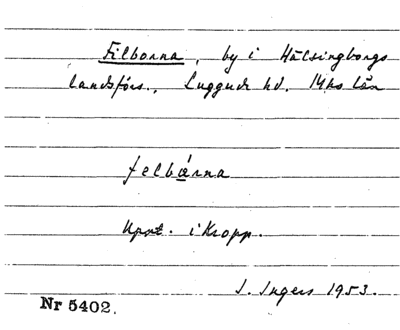 Filborna, by i Hälsingborgs
landsförs., Luggude hd. M-hs län
felbárna
Uppt. i Kropp.
I. Ingers 1953.
Nr 5402.